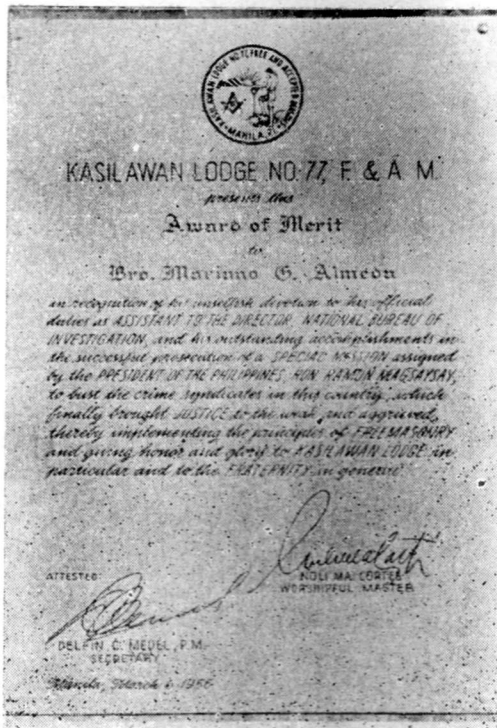 KASILAWAN LODGE NO. 77, FREE AND ACCEPTED MASONS
MANILA, P.I.
KASILAWAN LODGE NO. 77, F. & A. M.
presents this
Award of Merit
to
Bro. Mariano G. Almeda
in recognition of his unselfish devotion to his official
duties as ASSISTANT TO THE DIRECTOR, NATIONAL BUREAU OF
INVESTIGATION, and his outstanding accomplishments in
the successful prosecution of a SPECIAL MISSION assigned
by the PRESIDENT OF THE PHILIPPINES, HON. RAMON MAGSAYSAY,
to bust the crime syndicates in this country, which
finally brought JUSTICE to the weak and aggrieved,
thereby implementing the principles of FREEMASONRY
and giving honor and glory to KASILAWAN LODGE in
particular and to the FRATERNITY in general
ATTESTED:
NOLI MA. CORTES
WORSHIPFUL MASTER
DELFIN C. MEDEL, P.M.
SECRETARY
Manila, March 1956